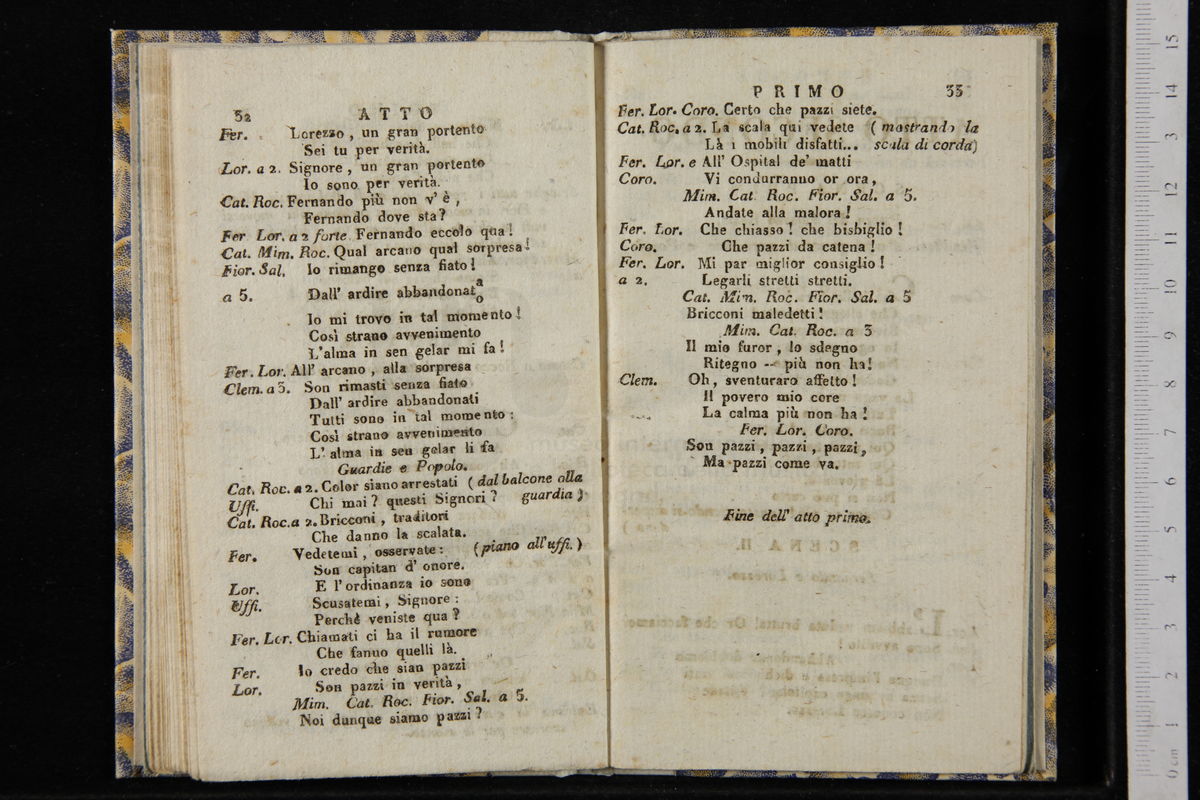 32 ATTO
Fer. Lorezzo, un gran portento
Sei tu per verità.
Lor. a 2. Signore, un gran portento
Io sono per verità.
Cat. Roc. Fernando più non v' è,
Fernando dove sta?
Fer Lor. a 2 forte Fernando eccolo qua!
Cat. Mim. Roc. Qual arcano qual sorpresa!
Fior. Sal. Io rimango senza fiato!
a 5. Dall' ardire abbandonat a o
Io mi trovo in tal momento!
Così strano avvenimento
L'alma in sen gelar mi fa!
Fer. Lor. All' arcano, alla sorpresa
Clem. a 3. Son rimasti senza fiato
Dall' ardire abbandonati
Tutti sono in tal momento:
Così strano avvenimento
L' alma in sen gelar li fa
Guardie e Popolo.
Cat. Roc. a 2. Color siano arrestati (dal balcone alla
Uffi. Chi mai? questi Signori? guardia)
Cat. Roc. a 2. Bricconi, traditori
Che danno la scalata.
Fer. Vedetemi, osservate: (piano all' uffi.)
Son capitan d' onore.
Lor. E l'ordinanza io sono
Uffi. Scusatemi, Signore:
Perchè veniste qua?
Fer. Lor. Chiamati ci ha il rumore
Che fanno quelli là.
Fer. Io credo che sian pazzi
Lor. Son pazzi in verità,
Mim. Cat. Roc. Fior. Sal. a 5.
Noi dunque siamo pazzi?
PRIMO 33
Fer. Lor. Coro. Certo che pazzi siete.
Cat. Roc. a 2. La scala qui vedete (mostrando la
Là i mobili disfatti... scala di corda)
Fer. Lor. e All' Ospital de' matti
Coro. Vi condurranno or ora,
Mim. Cat. Roc. Fior. Sal. a 5.
Andate alla malora!
Fer. Lor. Che chiasso! che bisbiglio!
Coro. Che pazzi da catena!
Fer. Lor. Mi par miglior consiglio!
a 2. Legarli stretti stretti.
Cat. Mim. Roc. Fior. Sal. a 5
Bricconi maledetti!
Mim. Cat. Roc. a 3
Il mio furor, lo sdegno
Ritegno -- più non ha!
Clem. Oh, sventuraro affetto!
Il povero mio core
La calma più non ha!
Fer. Lor. Coro.
Son pazzi, pazzi, pazzi,
Ma pazzi come va.
Fine dell' atto primo.
0 cm 1 2 3 4 5 6 7 8 9 10 11 12 13 14 15